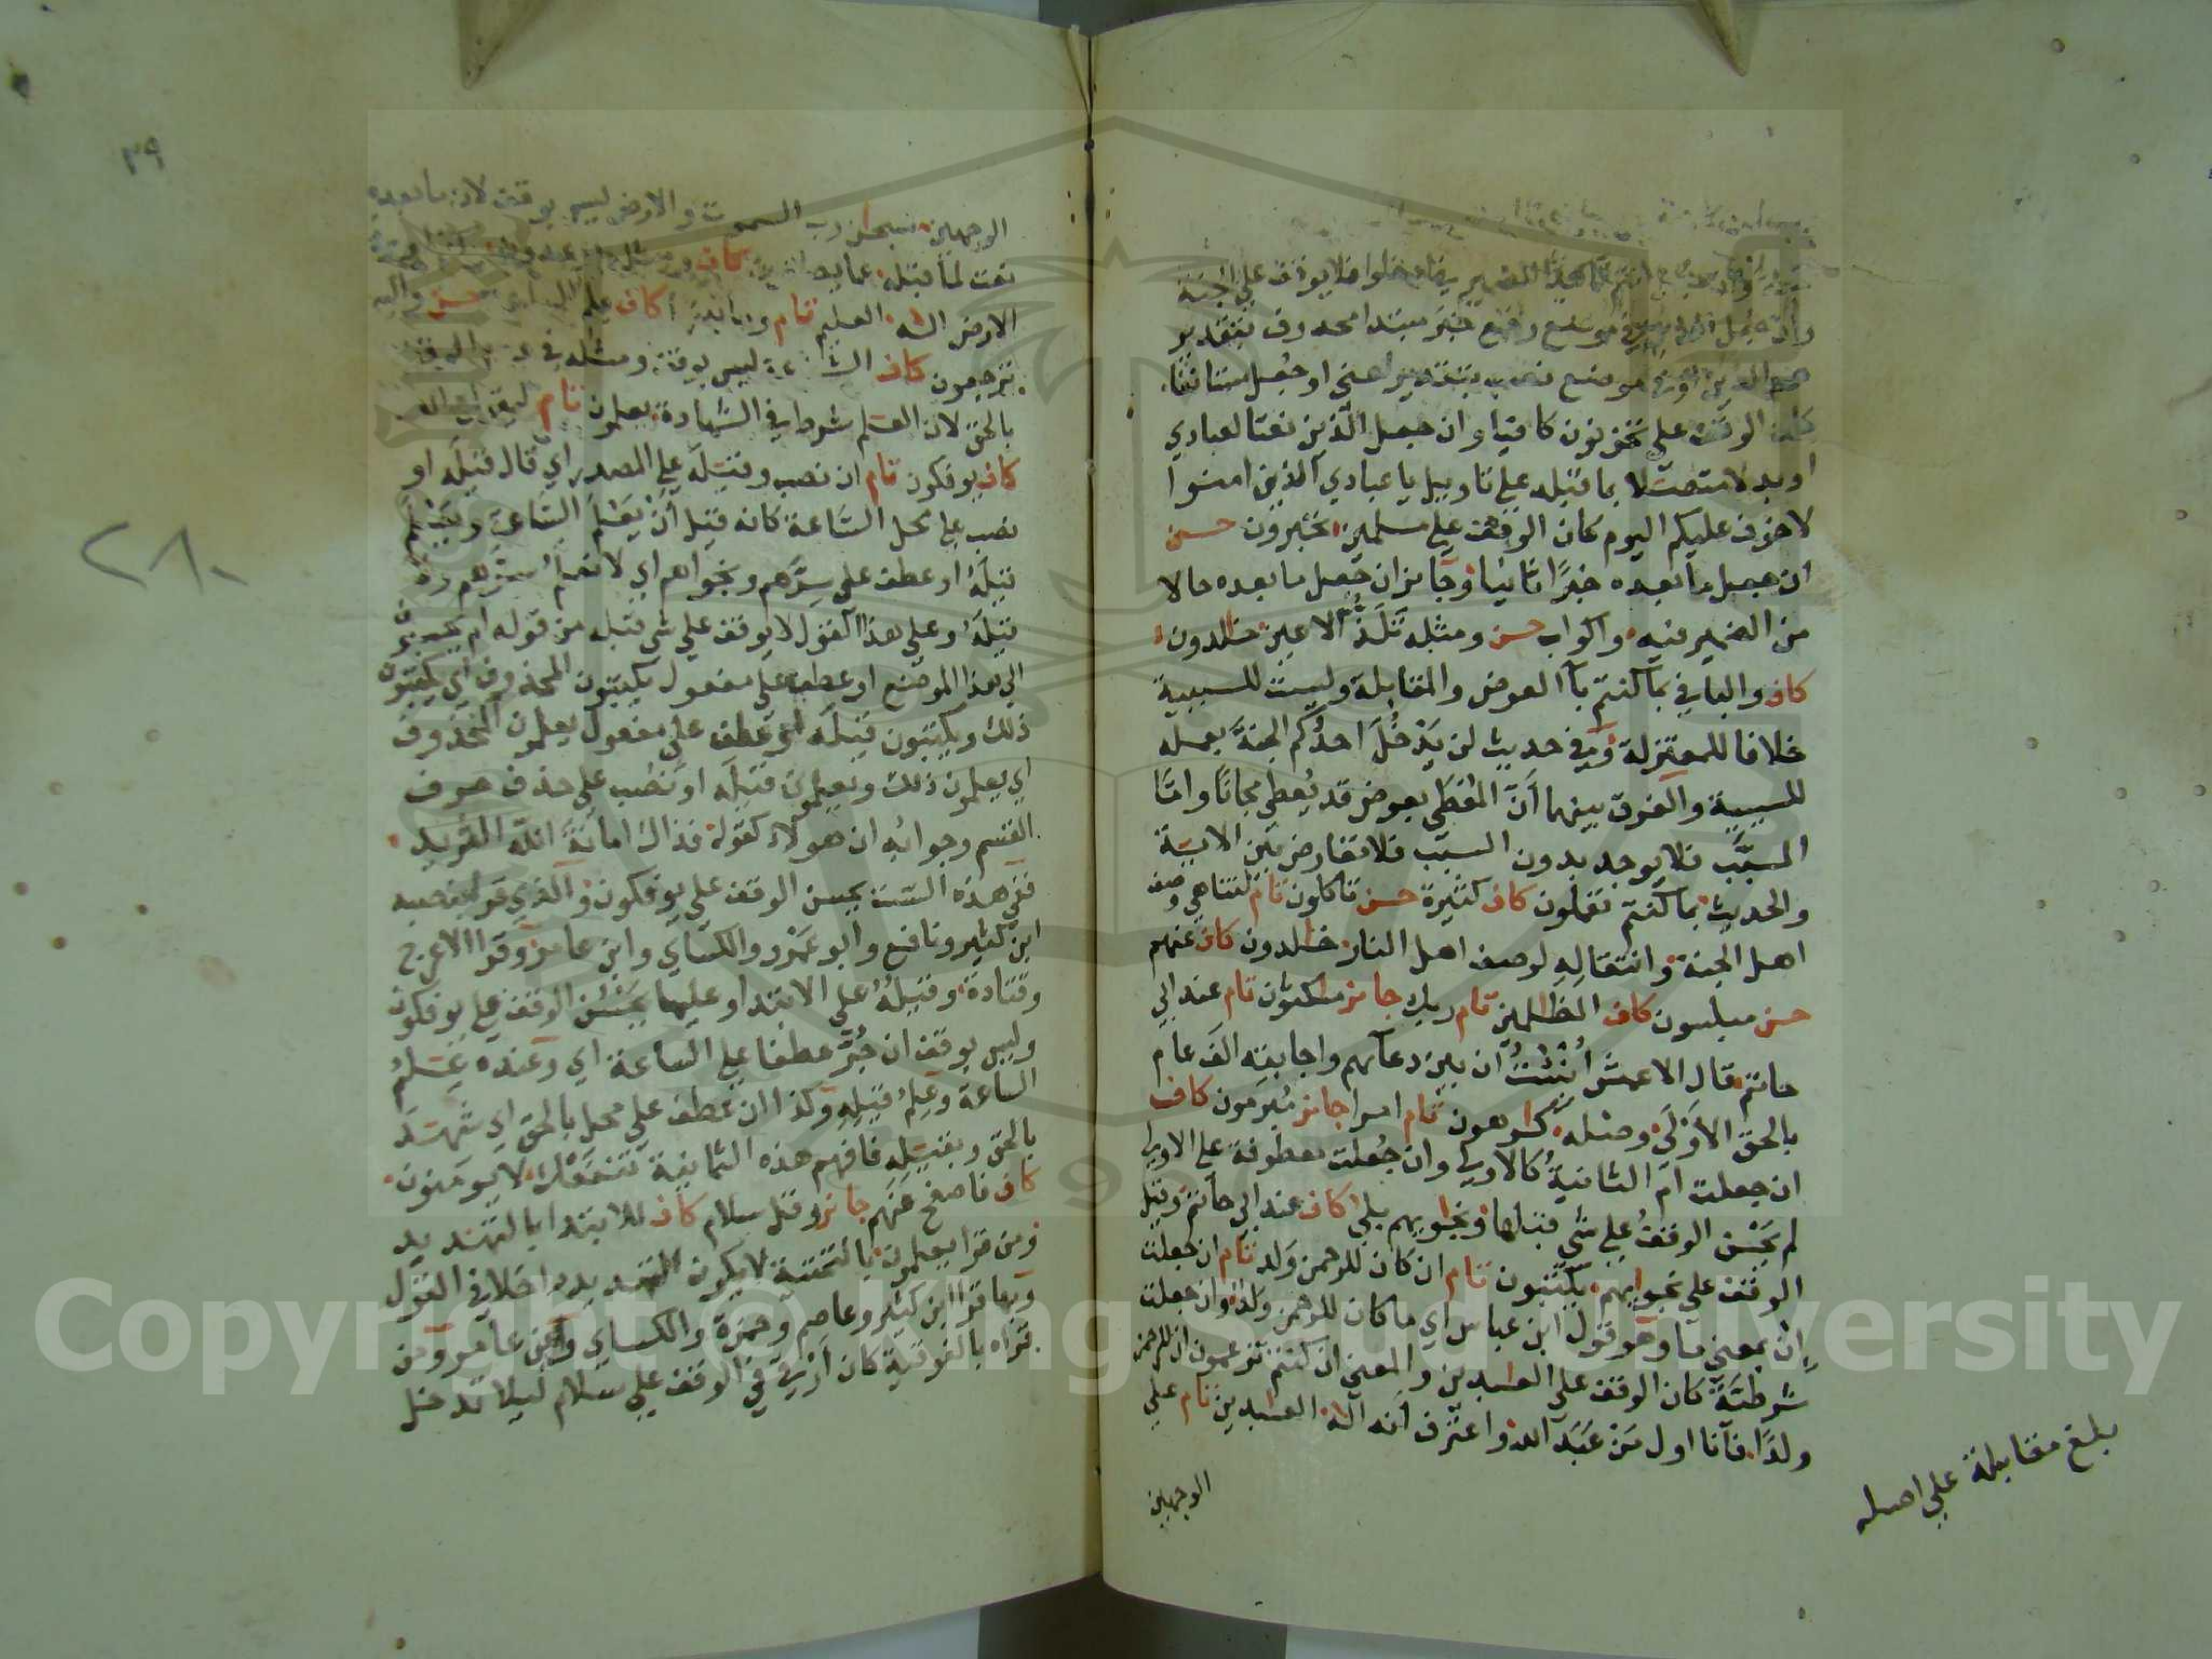 هم الذين او في موضع نصب بتقدير اعني او جعل مستانفا
كان الوقف على تحزنون كافيا وان جعل الذين نعتا لعبادي
او بدلا متصلا بما قبله على تاويل يا عبادي الذين امنوا
لا خوف عليكم اليوم كان الوقف على مسلمين تحبرون حسن
ان جعل ما بعده خبرًا ثانيا وجايز ان جعل ما بعده حالا
من الضمير فيه واكواب حسن ومثله تلذ الاعين خلدون
كاف والبا في بما كنتم بآ العوض والمقابلة وليست للسببية
خلافا للمعتزلة وفي حديث لن يدخل احدكم الجنة بعمله
للسببية والفرق بينهما ان المعطي بعوض قد يعطي مجانا وامّا
المسبَّب فلا يوجد بدون السبب فلا تعارض بين الاية
والحديث بما كنتم تعملون كاف كثيرة حسن تاكلون تام لتناهي وصف
اهل الجنة وانتقاله لوصف اهل النار خلدون كاف عنهم
حسن مبلسون كاف الظلمين تام ربك جايز مكثون تام عند ابي
حاتم قال الاعمش انبئت ان بين دعآئهم واجابته الف عام
بالحق الاولى وصله كرهون تام امرا جايز مبرمون كاف
ان جعلت ام الثانية كالاولى وان جعلت معطوفة على الاولى
لم يحسن الوقف على شي قبلها ونجويهم بلى كاف عند ابي حاتم وقيل
الوقف على نجويهم يكتبون تام ان كان للرحمن ولد تام ان جعلت
إن بمعنى ما وهو قول ابن عباس اي ما كان للرحمن ولد وان جعلت
شرطية كان الوقف على العبدين والمعنى ان كنتم تزعمون ان للرحمن
ولدًا فانا اول من عبد الله واعترف انه اله العبدين تام على
الوجهين
بلغ مقابلة على اصله
٣٩
٢٨٠
الوجهين سبحن رب السموت والارض ليس بوقف لان ما بعده
نعت لما قبله عما يصفون كاف
الارض اله العليم تام وما بينهما كاف على حسن واليه
ترجعون كاف الشفاعة ليس بوقف ومثله في
بالحق لان العلم شرط في الشهادة يعلمون تام ليقولن الله
كاف يوفكون تام ان نصب وقيله على المصدر اي قال قيله او
نصب على محل الساعة كانه قيل ان يعلم الساعة ويعلم
قيله او عطف على سرهم ونجواهم اي لا نعلم سرهم ولا
قيله وعلى هذا القول لا يوقف على شي قبله من قوله ام يحسبون
الى هذا الموضع او عطف على مفعول يكتبون المحذوف اي يكتبون
ذلك ويكتبون قيله او عطف على مفعول يعلمون المحذوف
اي يعلمون ذلك ويعلمون قيله او نصب على حذف حرف
القسم وجوابه ان هولاء كقوله فذاك امانة الله الثريد
ففي هذه الست يحسن الوقف على يوفكون والذي قرا بنصبه
ابن كثير ونافع وابو عمرو والكساي وابن عامر وقرا الاعرج
وقتادة وقيله على الابتدا وعليها يحسن الوقف على يوفكون
وليس بوقف ان جر عطفا على الساعة اي وعنده علم
الساعة وعلم قيله وكذا ان عطف على محل بالحق اي شهد
بالحق وبقيله فافهم هذه الثمانية تنفعك لا يومنون
كاف فاصفح عنهم جايز وقل سلام كاف للابتدا بالتهديد
ومن قرا يعلمون بالتحتية لا يكون التهديد داخلا في القول
وبها قرا ابن كثير وعاصم وحمزة والكساي وابن عامر ومن
قراه بالفوقية كان ارقى في الوقف على سلام ليلا تدخل
Copyright © King Saud University